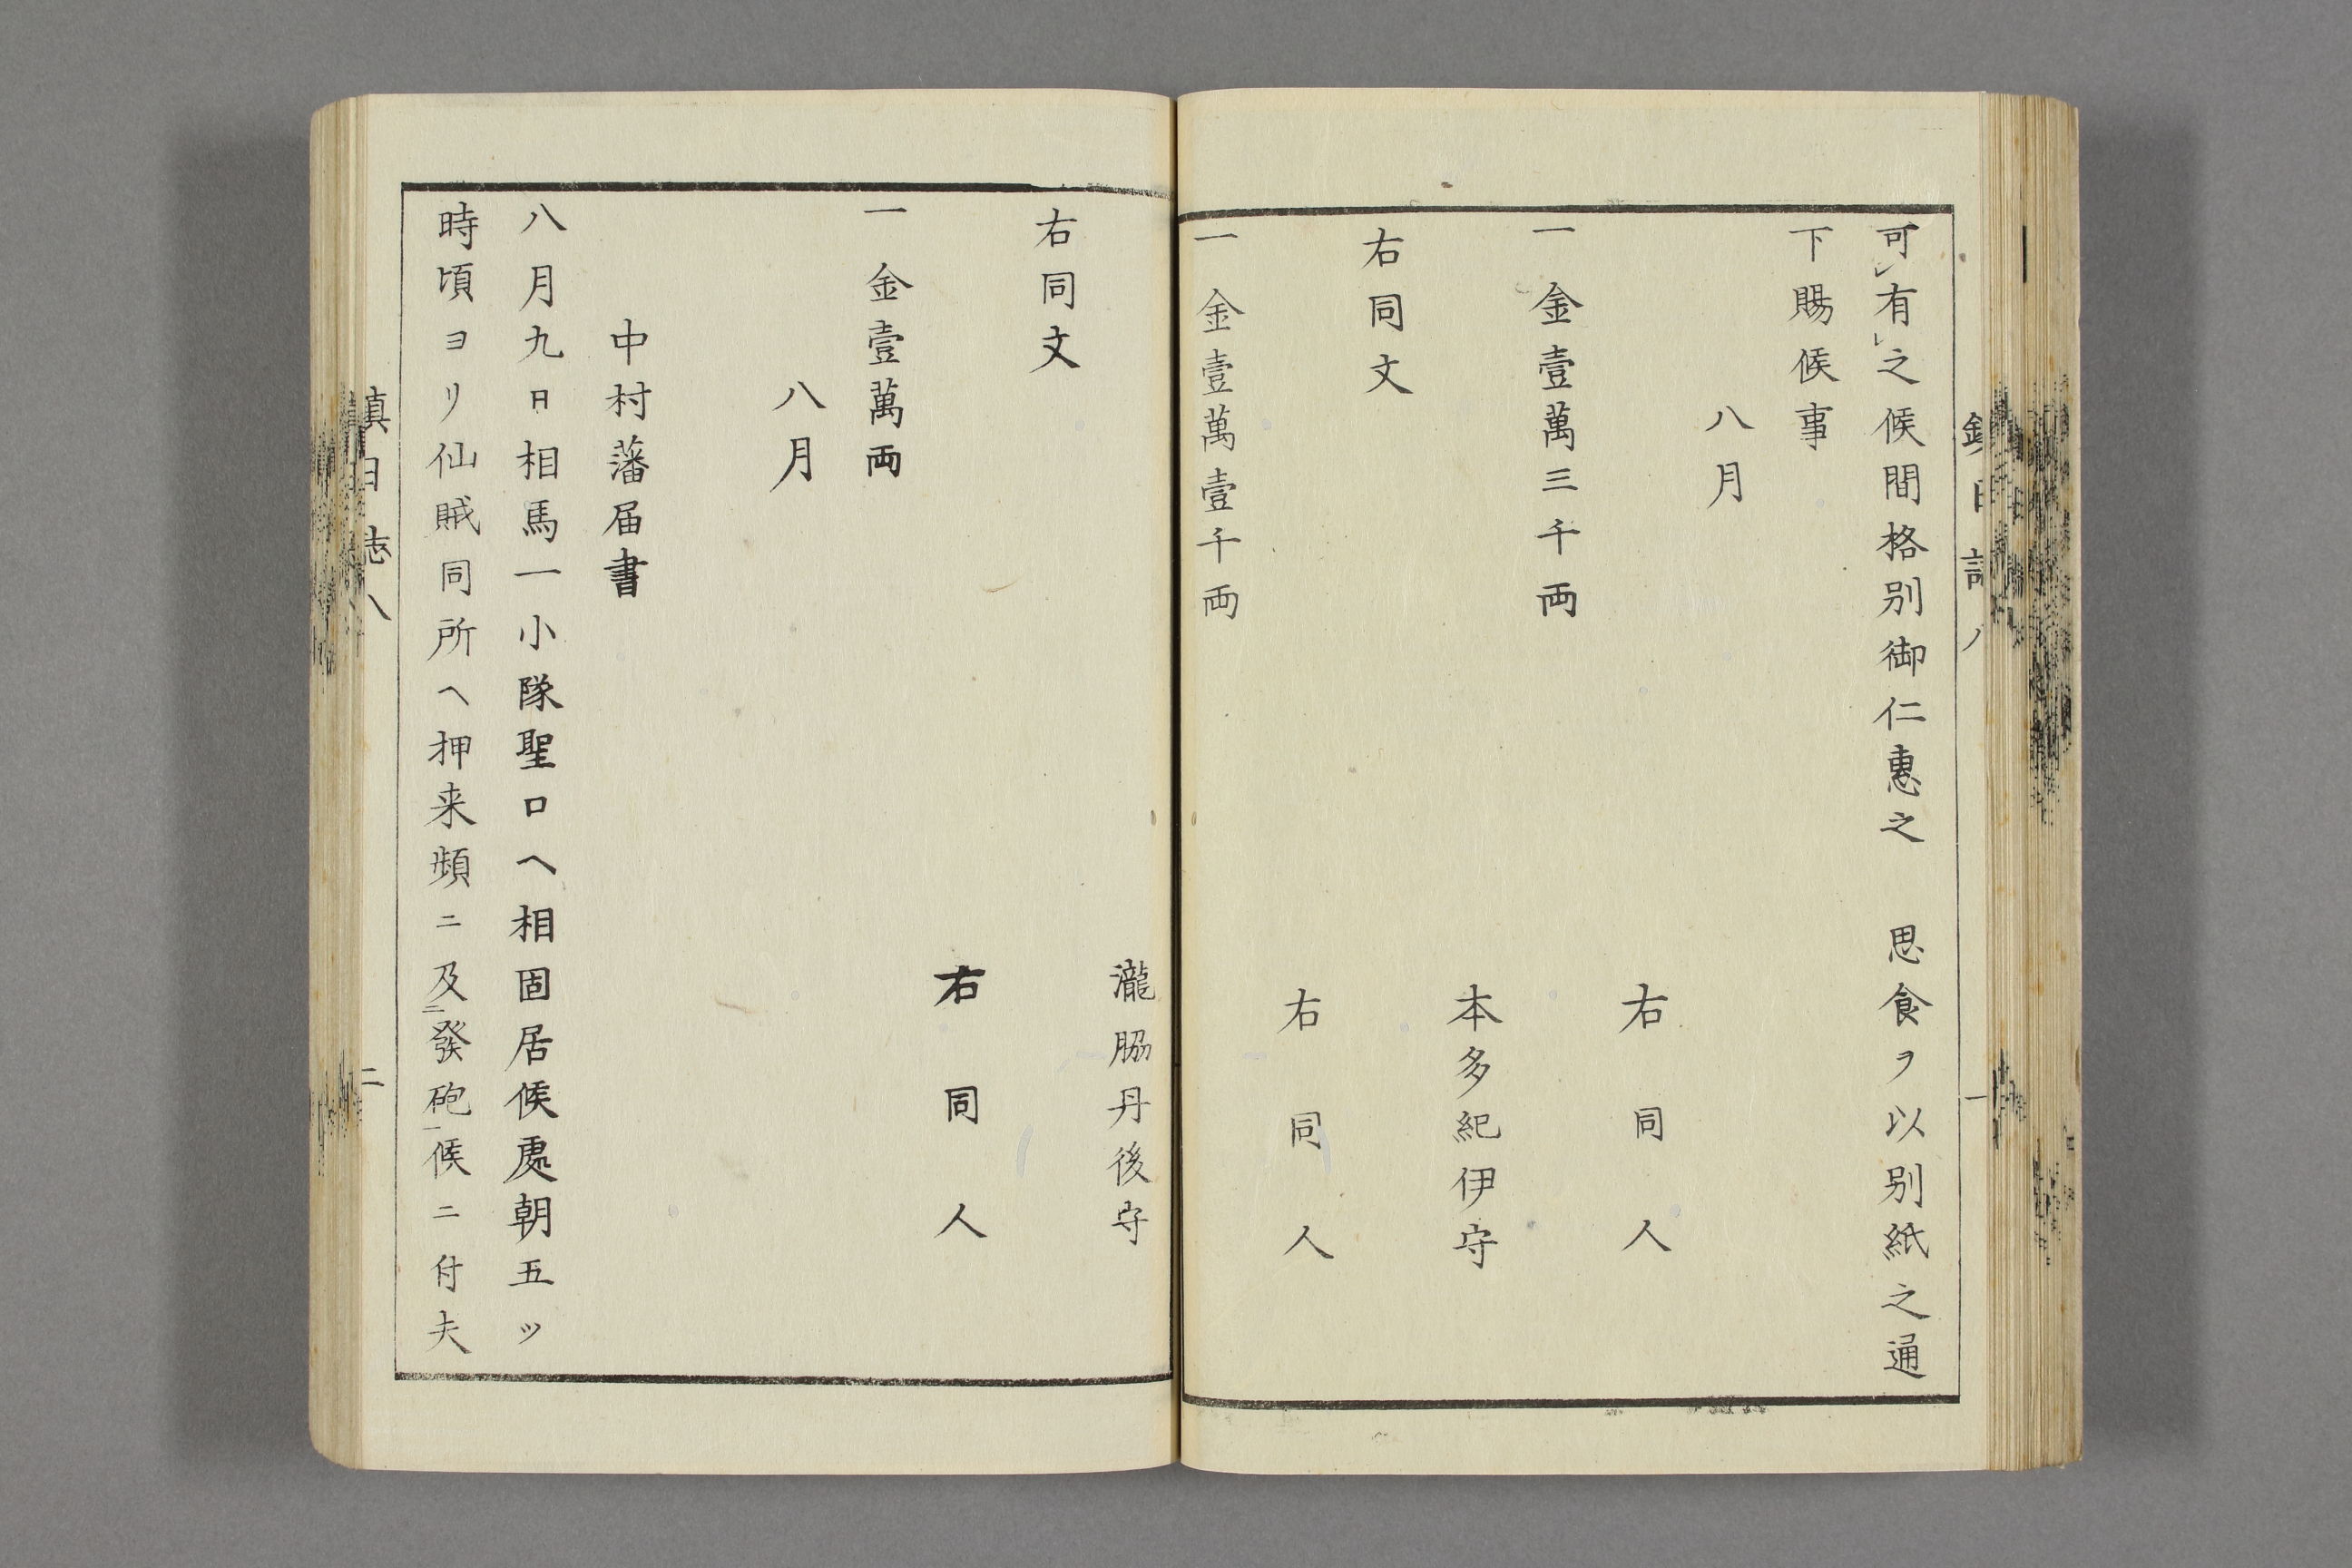 可レ有レ之候間格別御仁惠之　思食ヲ以別紙之通
下賜候事
八月
右同人
一金壹萬三千両
本多紀伊守
右同文
右同人
一金壹萬壹千両
瀧脇丹後守
右同文
右同人
一金壹萬両
八月
中村藩届書
八月九日相馬一小隊聖口ヘ相固居候處朝五ツ
時頃ヨリ仙賊同所ヘ押来頻ニ及二發砲一候ニ付夫
鎮日誌八
二